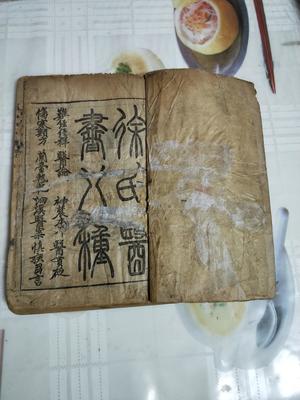 徐氏醫
書八種
難經經釋 醫論 神農本 醫貫砭
傷寒類方 蘭臺軌範 洄溪醫案 慎疾芻言